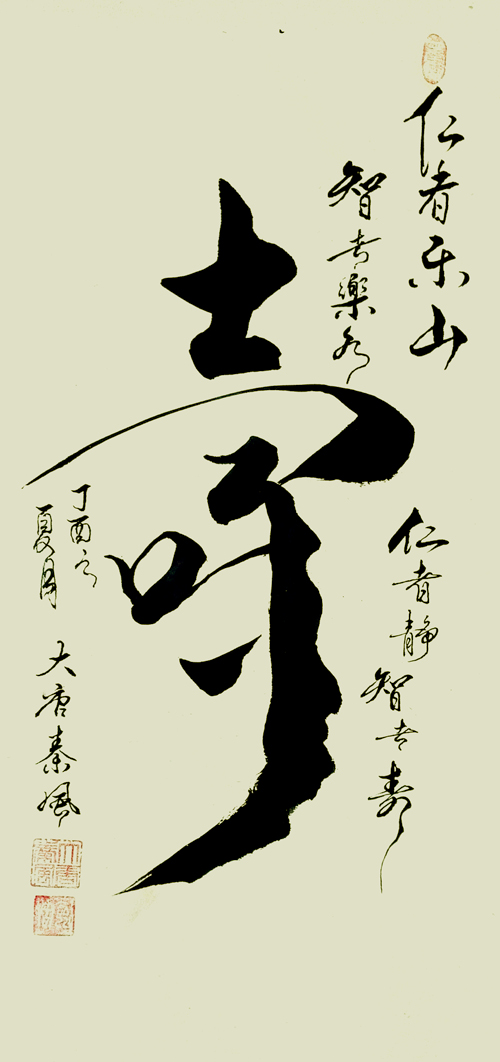 仁者乐山
智者樂水
壽
仁者静
智者壽
丁酉之
夏月
大唐秦風